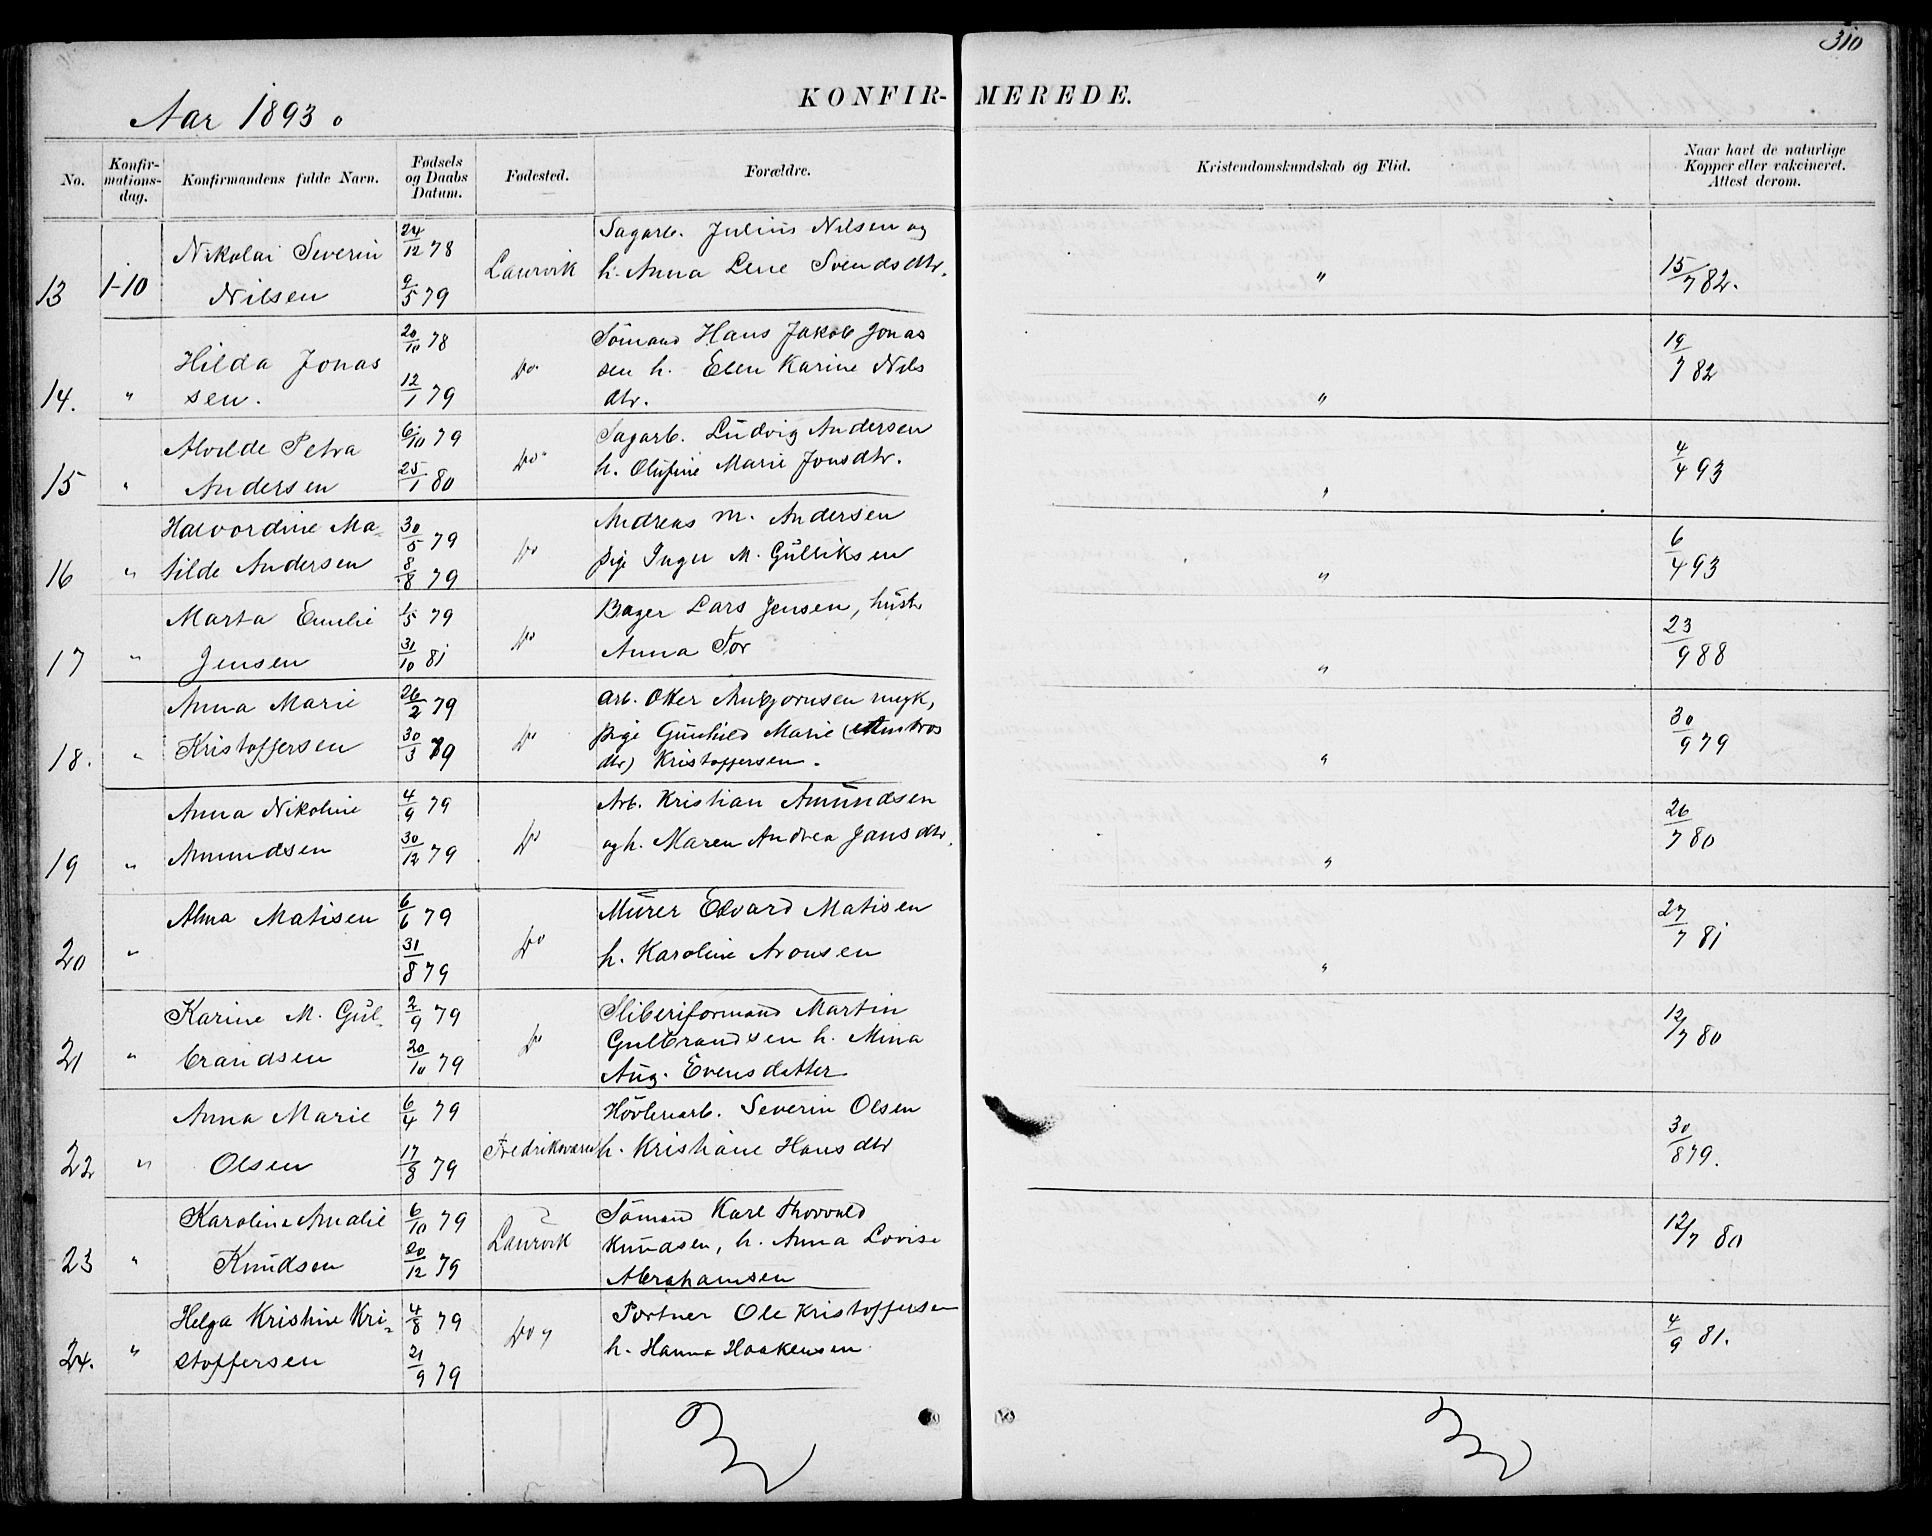 310
KONFIR- MEREDE.
Aar 1893.
No.
Konfir-
mations-
dag.
Konfirmandens fulde Navn.
Fødsels
og Daabs
Datum.
Fødested.
Forældre.
Kristendomskundskab og Flid.
Naar havt de naturlige
Kopper eller vakcineret.
Attest derom.
13 1-10 Nikolai Severin
Nilsen
24/12 78
9/5 79
Laurvik
Sagarb. Julius Nilsen og
h. Anna Lene Svendsdtr.
"
15/7 82.
14. " Hilda Jonas
sen.
20/10 78
12/1 79
Do.
Sömand Hans Jakob Jonas
sen h. Elen Karine Nils
dtr.
"
19/7 82
15 " Alvilde Petra
Andersen
6/10 79
25/1 80
Do.
Sagarb. Ludvig Andersen
h. Olufine Marie Jonsdtr.
"
4/4 93
16 " Halvordine Ma-
tilde Andersen
30/5 79
8/8 79
Do
Andreas M. Andersen
pige Inger M. Gulliksen
"
6/4 93
17 " Marta Emilie
Jensen
1/5 79
31/10 81
Do
Bager Lars Jensen, hustr
Anna Tor
"
23/9 88
18. " Anna Marie
Kristoffersen
26/2 79
30/3 79
Do
arb. Oker Anbjørnsen ungk,
pige Gunhild Marie
dtr) Kristoffersen.
"
30/9 79
19 " Anna Nikoline
Amundsen
4/9 79
30/12 79
Do
Arb. Kristian Amundsen
og h. Maren Andrea Jansdtr.
"
26/7 80
20 " Alma Matisen
6/6 79
31/8 79
Do
Murer Edvard Matisen
h. Karoline Aronsen
"
27/7 81
21 " Karine M. Gul-
brandsen
2/9 79
20/10 79
Do
Sliberiformand Martin
Gulbrandsen h. Mina
Aug. Evensdatter
12/7 80
22 " Anna Marie
Olsen
6/4 79
17/8 79
Fredriksværn
Hövleriarb. Severin Olsen
h. Kristiane Hansdtr
30/8 79.
23 " Karoline Amalie
Knudsen
6/10 79
20/12 79
Laurvik
Sömand Karl Thorvald
Knudsen, h. Anna Lovise
Abrahamsen
12/7 80
24. " Helga Kristine Kri-
stoffersen
4/8 79
21/9 79
Do
Portner Ole Kristoffersen
h. Hanna Haakensen
4/9 81.